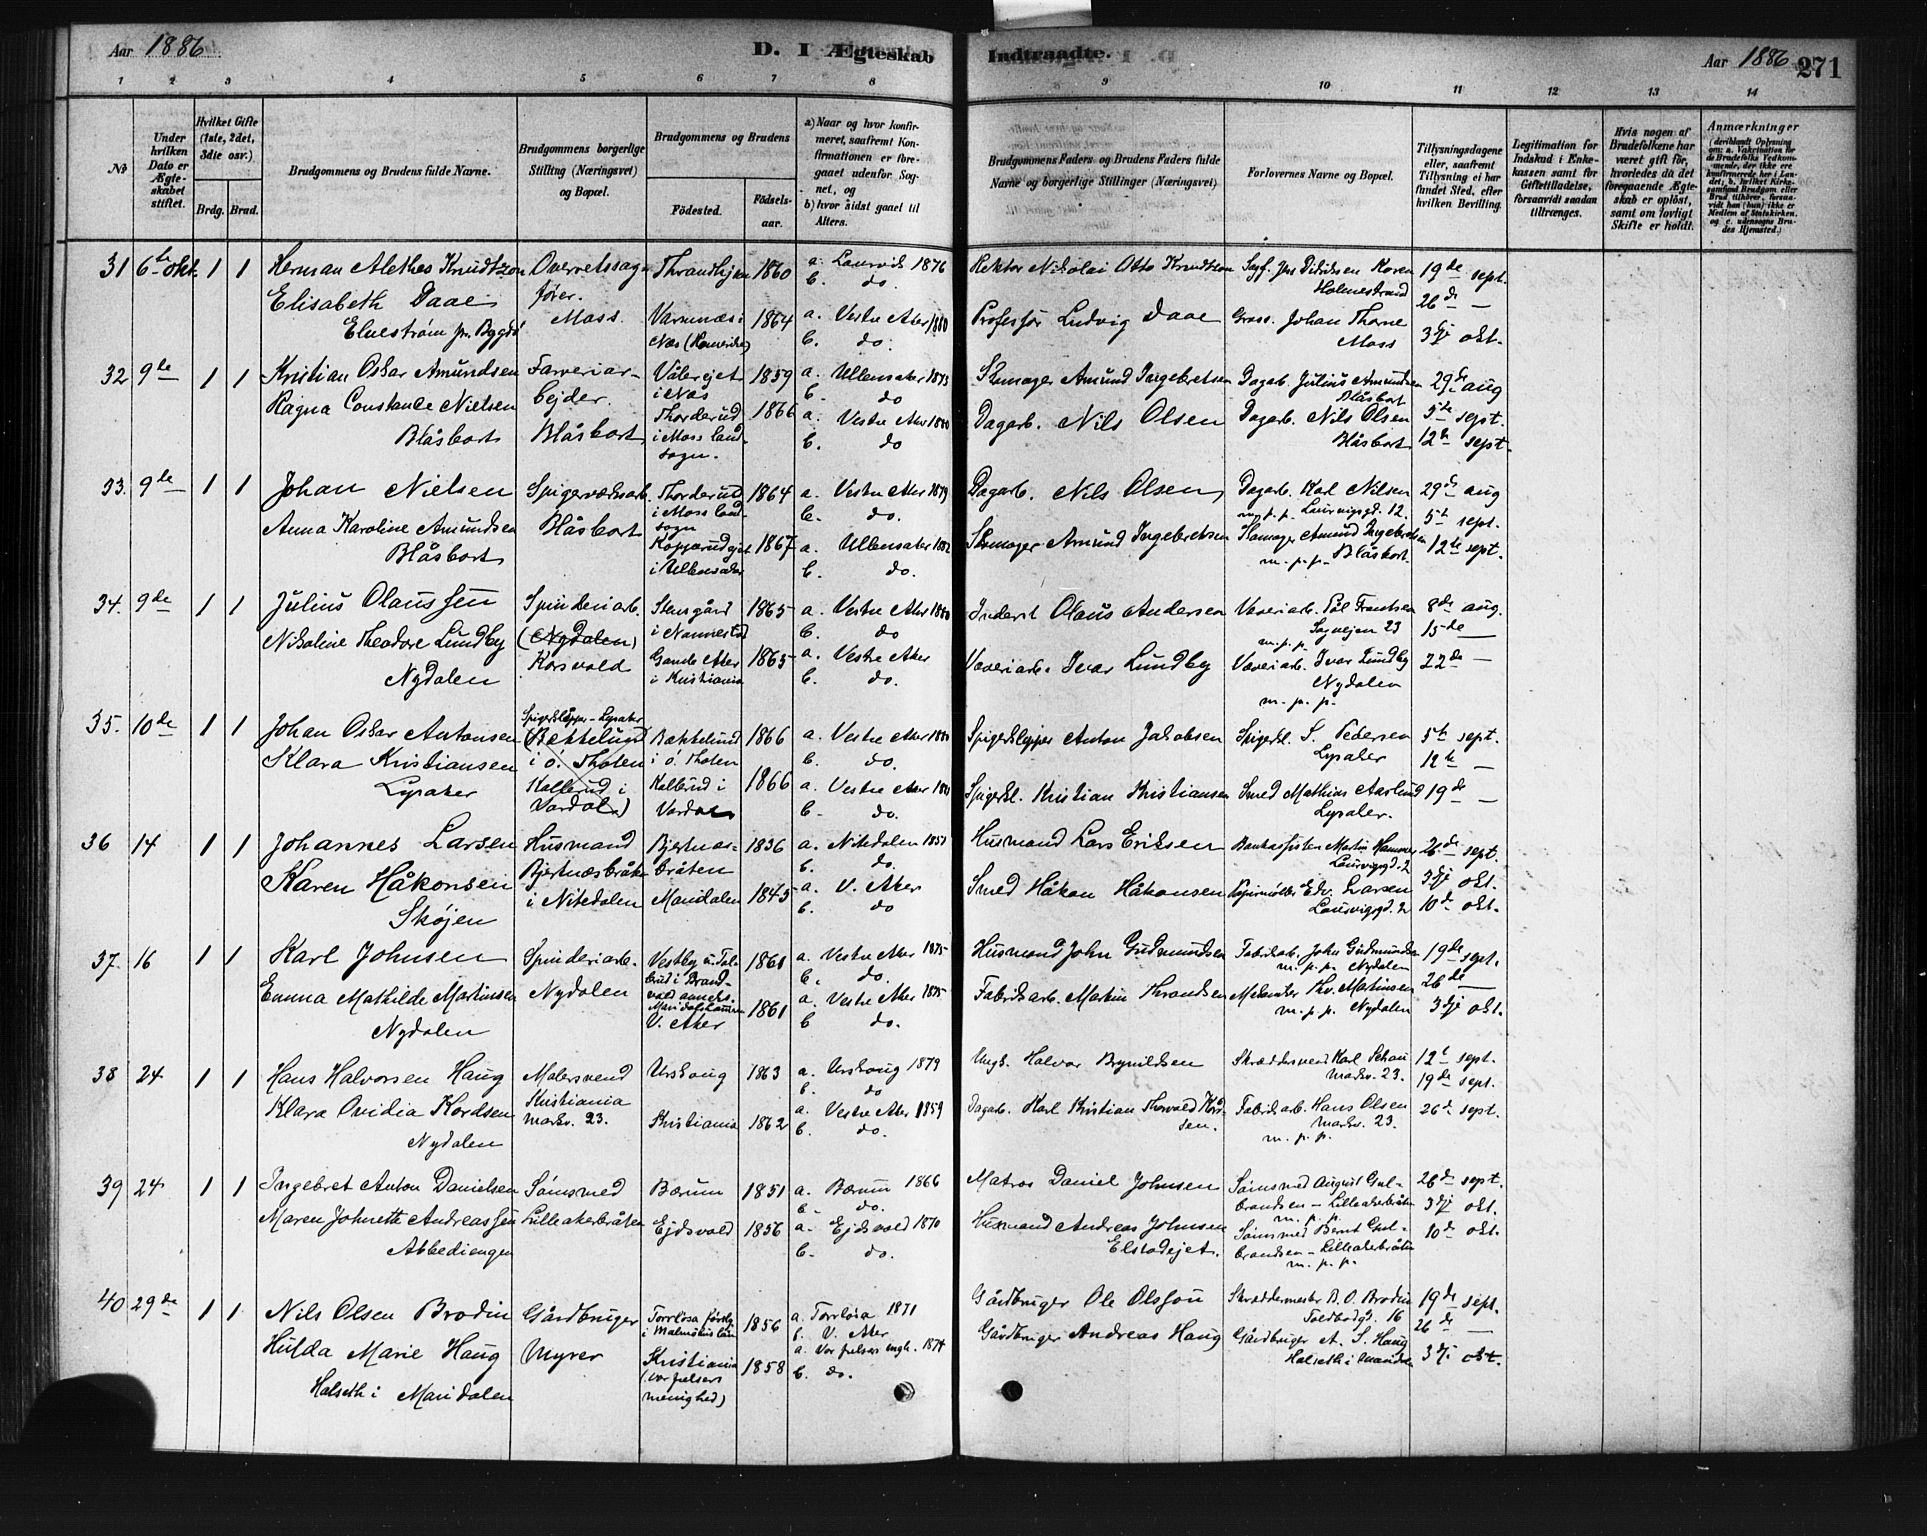 Aar 1886
D. I Ægteskab
Indtraadte.
Aar 1886
271
1 2 3 4 5 6 7 8
9 10 11 12 13 14
No
Under hvilken Dato er Ægteskabet stiftet.
Hvilket Gifte (1ste, 2det, 3die osv.)
Brdg. Brud.
Brudgommens og Brudens fulde Navne.
Brudgommens borgerlige Stilling (Næringsvei) og Bopæl.
Brudgommens og Brudens
Fødested.
Fødselsaar.
a) Naar og hvor konfirmeret, saafremt Konfirmationen er foregaaet udenfor Sognet, og
b) hvor sidst gaaet til Alters.
Brudgommens Faders og Brudens Faders fulde Navne og borgerlige Stillinger (Næringsvei)
Forlovernes Navne og Bopæl.
Tillysningsdagene eller, saafremt Tillysning ei har fundet Sted, efter hvilken Bevilling.
Legitimation for Indskud i Enkekassen samt for Giftetilladelse, forsaavidt saadan tiltrænges.
Hvis nogen af Brudefolkene har været gift før, hvorledes da det foregaaende Ægteskab er opløst, samt om lovligt Skifte er holdt.
Anmærkninger
31 6te okt. 1 1
Herman Alethes Knudtzon
Elisabeth Daae
Elvestrøm pr. Bygdø
Overretssagfører.
Moss
Throndhjem 1860
a. Laurvik 1876
b. do.
1864
a. Vestre Aker 1880
b. do.
Rektor Nikolai Otto Knudtzon
Professor Ludvig Daae
Holmestrand
Gross. Johan Thorne
Moss
19de sept.
26de —
3dje okt.
32 9de 1 1
Kristian Oskar Amundsen
Ragna Constance Nielsen
Blåsbort
Farveriarbejder.
Blåsbort
Vålerejet i Næs 1859
Thorderud i Moss landsogn. 1866
a. Ullensaker 1873
b. do
a. Vestre Aker 1880
b. do
Skomager Amund Ingebretsen
Dagarb. Nils Olsen
Dagarb. Julius Amundsen
Blåsbort
Dagarb. Nils Olsen
Blåsbort
29de aug
5te sept.
12te sept.
33. 9de 1 1
Johan Nielsen
Anna Karoline Amundsen
Blåsbort
Spigerværksarb.
Blåsbort
Thorderud i Moss landsogn 1864
i Ullensaker 1867
a. Vestre Aker 1879
b. do.
a. Ullensaker 1882
b. do.
Dagarb. Nils Olsen
Skomager Amund Ingebretsen
Dagarb. Karl Nilsen
m. p. p. Laurvigsgd. 12.
Skomager Amund Ingebretsen
m. p. p. Blåsbort
29de aug
5te sept.
12te sept.
34. 9de 1 1
Julius Olaussen
Nikoline Theodore Lundby
Nydalen
Spinderiarb.
(Nydalen)
Korsvold
Stengård i Nannestad 1865
Gamle Aker i Kristiania 1865
a. Vestre Aker 1880
b. do
a. Vestre Aker
b. do.
Inderst Olaus Andersen
Væveriarb. Ivar Lundby
Væveriarb. Pål Frantsen
m. p. p. Sagvejen 23
Væveriarb. Ivar Lundby
Nydalen
m. p. p.
8de aug.
15de —
22de —
35. 10de 1 1
Johan Oskar Antonsen
Klara Kristiansen
Lysaker
Spigerklipper - Lysaker
(Bækkelund i ø. Thoten
Kolberud i Vardal)
Bækkelund i ø. Thoten 1866
Kolberud i Vardal 1866
a. Vestre Aker
b. do.
a. Vestre Aker
b. do.
Spigerklipper Anton Jakobsen
Spigerkl. Kristian Kristiansen
Spigerkl. S. Pedersen
Lysaker
Smed Mathias Aarlund
Lysaker.
5te sept.
12te —
19de —
36 14 1 1
Johannes Larsen
Karen Håkonsen
Skøjen
Husmand
Bjertnæsbråten
i Nitedalen
Bjertnæsbråten 1836
Maridalen 1845
a. Nitedalen 1851
b. do.
a. V. Aker
b. do
Husmand Lars Eriksen
Smed Håkon Håkonsen
Martin Hammer
Laurvigsgd. 2
Edv. Larsen
Laurvigsgd. 2
26de sept.
3dje okt.
10de okt.
37. 16 1 1
Karl Johnsen
Emma Mathilde Martinsen
Nydalen
Spinderiarb.
Nydalen
1861
Maridalshammeren
V. Aker 1861
a. Vestre Aker 1875
b. do.
a. Vestre Aker 1875
b. do.
Husmand John Gudmundsen
Fabrikarb. Martin Thrandsen
Fabrikarb. John Gudmundsen
m. p. p. Nydalen
Martinsen
m. p. p. Nydalen
19de sept.
26de —
3dje okt.
38 24 1 1
Hans Halvorsen Haug
Klara Ovidia Kordsen
Nydalen
Malersvend
Kristiania
Markv. 23.
Urskoug 1863
Kristiania 1862
a. Urskoug 1879
b. do
a. Vestre Aker 1859
b. do.
Ungk. Halvor Brynildsen
Dagarb. Karl Kristian Thorvald Kordsen.
Skræddersvend Karl Schau
Markv. 23.
Fabrikarb. Hans Olsen
Markv. 23.
m. p. p.
12te sept.
19de sept.
26de sept.
39 24 1 1
Ingebret Anton Danielsen
Maren Johnette Andreassen
Abbediengen
Sømsmed
Lilleakerbråten
Bærum 1851
Ejdsvold 1856
a. Bærum 1866
b. do.
a. Ejdsvold 1870
b. do.
Matros Daniel Johnsen
Husmand Andreas Johnsen
Elstadejet.
Sømsmed August Gulbrandsen - Lilleakerbråten
m. p. p.
Sømsmed Bernt Gulbrandsen - Lilleakerbråten
m. p. p.
26de sept.
3dje okt.
10de okt.
40 29de 1 1
Nils Olsen Brodin
Hulda Marie Haug
Halseth i Maridalen
Gårdbruger
Myrer
Torrlösa
i Malmöhus län 1856
Kristiania
(Vor frelsers
menighed) 1858
a. Torrlösa 1871
b. V. Aker
a. Vor frelsers mgh. 1874
b. do.
Gårdbruger Ole Olsson
Gårdbruger Andreas Haug
Skræddermester B. O. Brodin
Toldbodgd. 16
Gårdbruger A. S. Haug
Halseth i Maridalen
19de sept.
26de —
3dje okt.